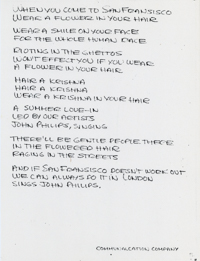 WHEN YOU COME TO SAN FRANSISCO
WEAR A FLOWER IN YOUR HAIR
WEAR A SMILE ON YOUR FACE
FOR THE WHOLE HUMAN RACE
RIOTING IN THE GHETTOS
WON'T EFFECT YOU IF YOU WEAR
A FLOWER IN YOUR HAIR
HAIR A KRISHNA
HAIR A KRISHNA
WEAR A KRISHNA IN YOUR HAIR
A SUMMER LOVE-IN
LED BY OUR ARTISTS
JOHN PHILIPS, SINGING
THERE'LL BE GENTLE PEOPLE THERE
IN THE FLOWERED HAIR
RAGING IN THE STREETS
AND IF SAN FRANSISCO DOESN'T WORK OUT
WE CAN ALWAYS DO IT IN LONDON
SINGS JOHN PHILIPS.
COMMUNICATION COMPANY